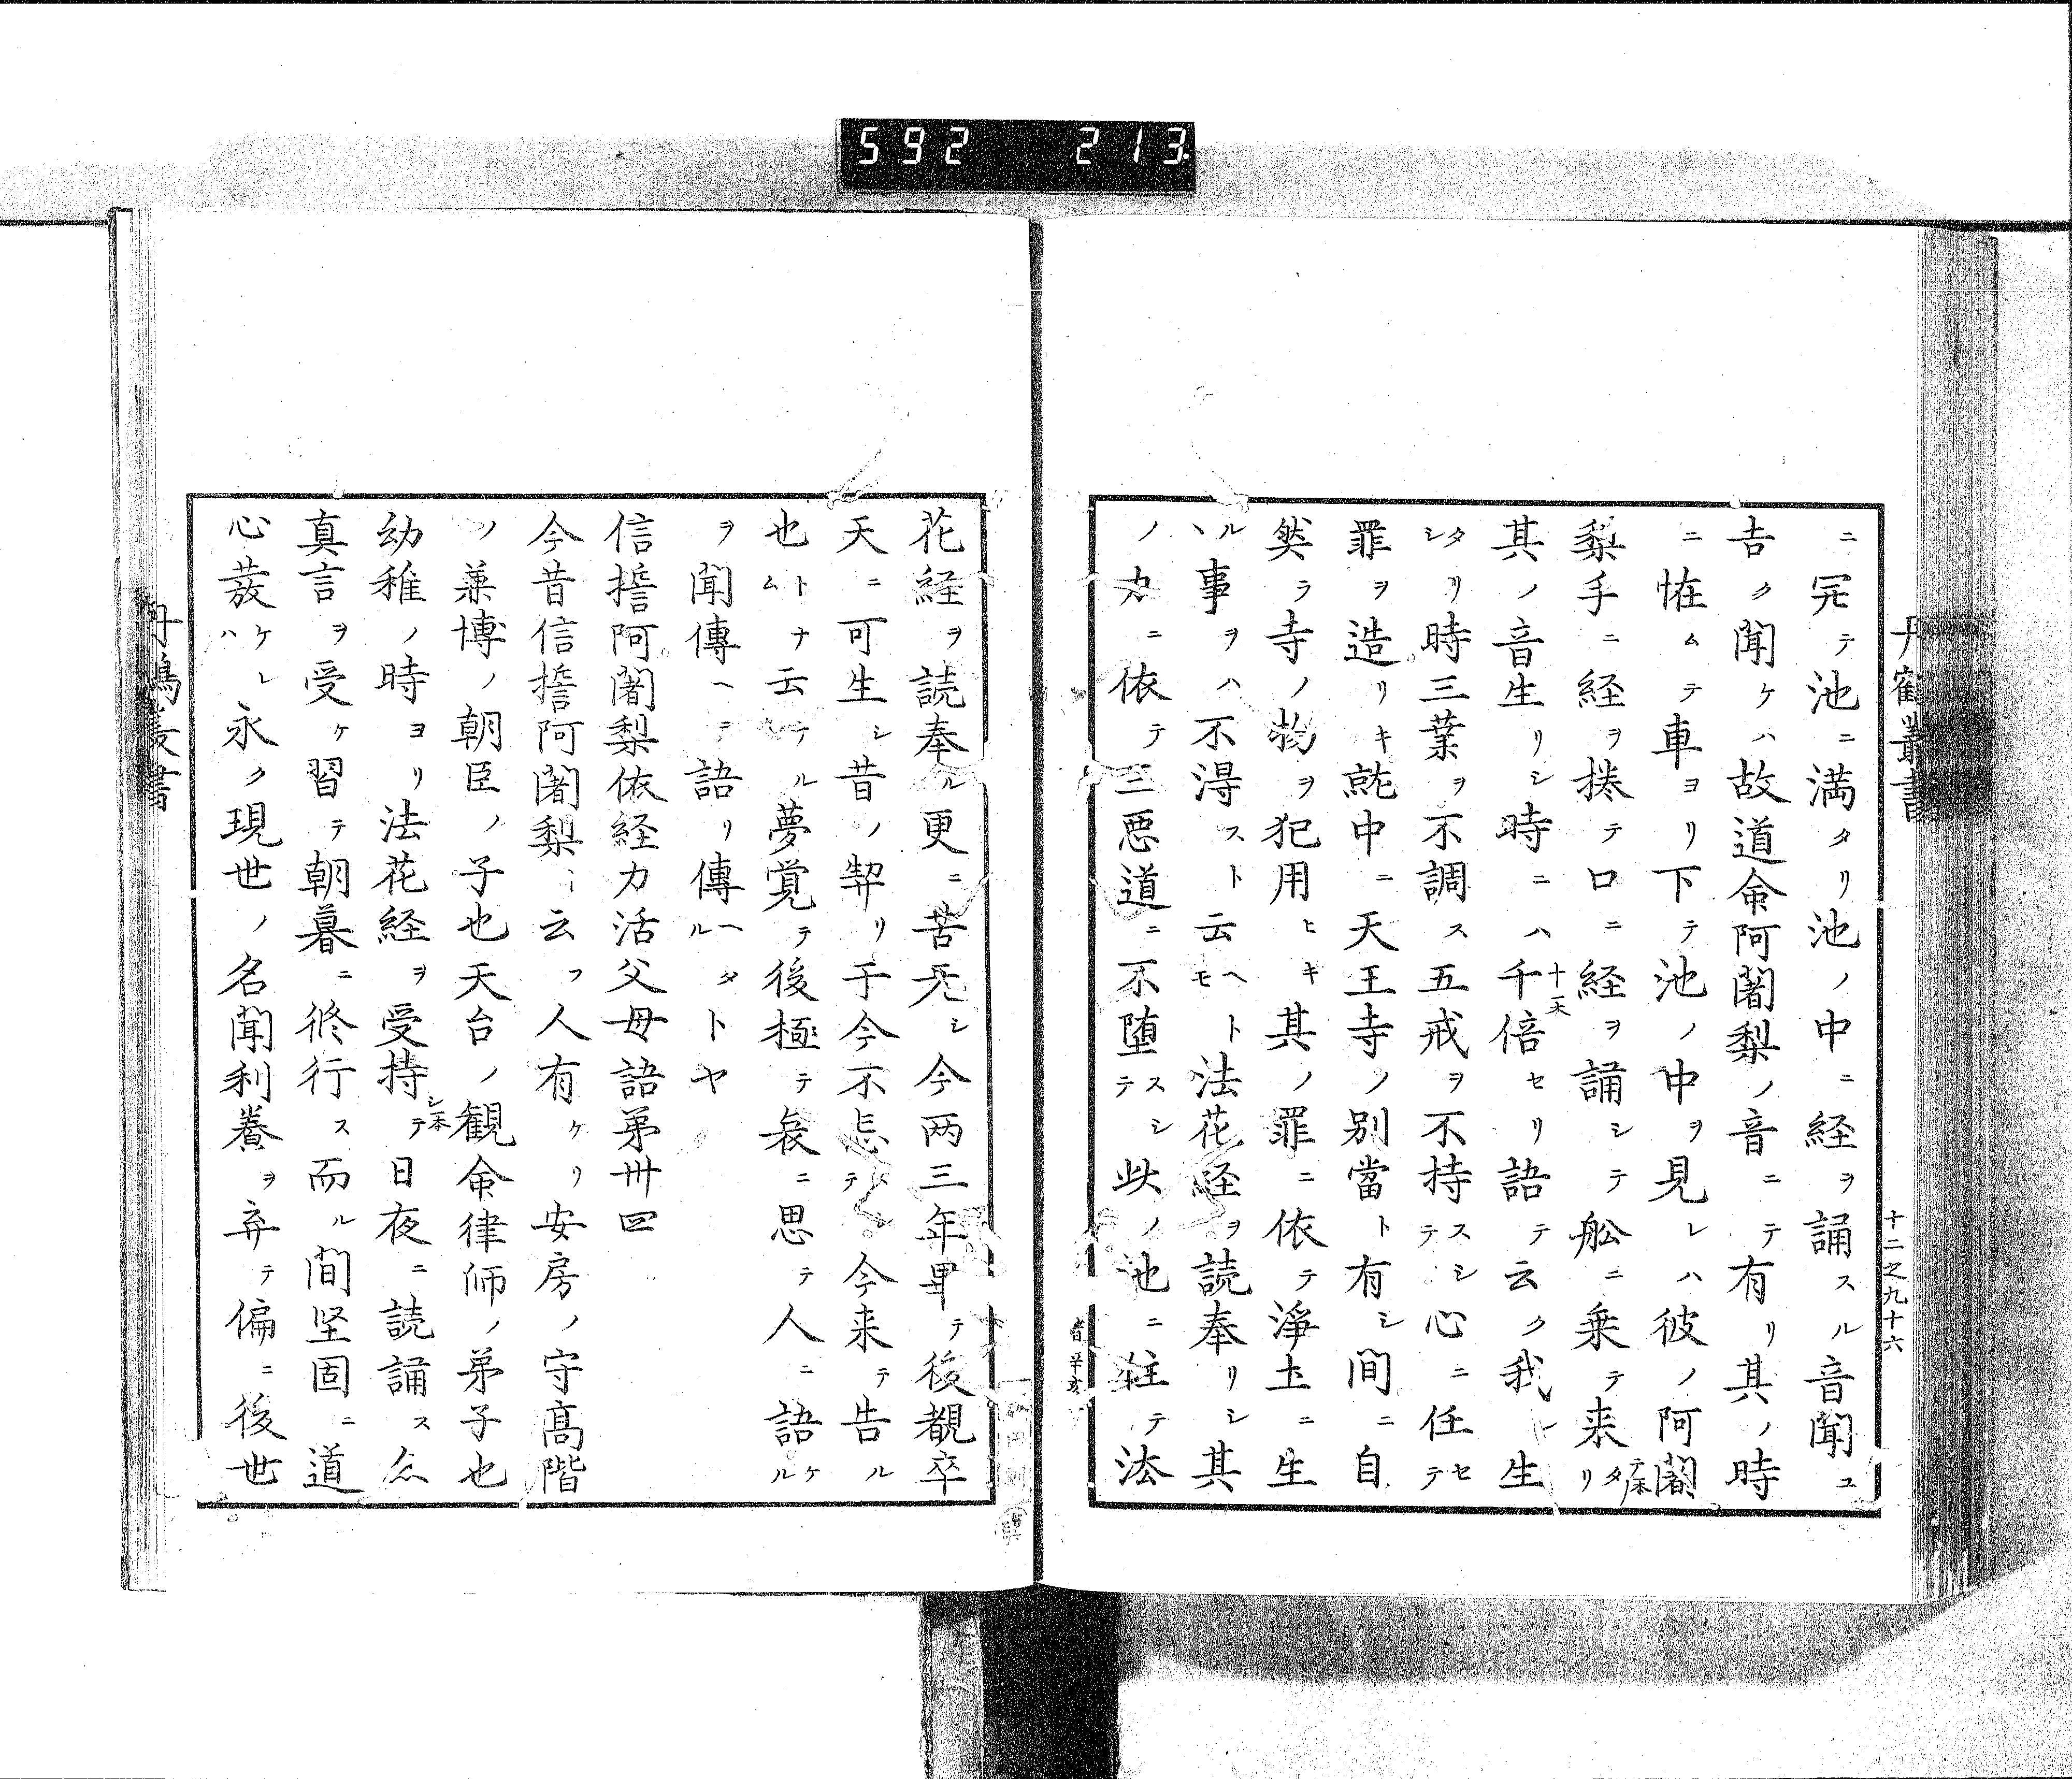 592 213
丹鶴叢書
十二之九十六
ニ完テ池ニ満タリ池ノ中ニ経ヲ誦スル音聞ユ
吉ク聞ケハ故道命阿闍梨ノ音ニテ有リ其ノ時
ニ恠ムテ車ヨリ下テ池ノ中ヲ見レハ彼ノ阿闍
梨手ニ経ヲ捲テ口ニ経ヲ誦シテ舩ニ乗テ来タリ
其ノ音生リシ時ニハ千倍セリ語テ云ク我レ生
タリシ時三業ヲ不調ス五戒ヲ不持スシテ心ニ任セテ
罪ヲ造リキ就中ニ天王寺ノ別當ト有シ間ニ自
然ラ寺ノ物ヲ犯用ヒキ其ノ罪ニ依テ浄土ニ生
ルヽ事ヲハ不得スト云ヘトモ法花経ヲ読奉リシ其
ノ力ニ依テ三悪道ニ不堕スシテ此ノ池ニ住テ法
花経ヲ読奉ル更ニ苦无シ今两三年畢テ後覩卒
天ニ可生シ昔ノ契リ于今不忘テ今来テ告ル
也トナム云テル夢覚テ後極テ哀ニ思テ人ニ語ケル
ヲ聞傳ヘテ語リ傳ヘタルトヤ
信誓阿闍梨依経力活父母語第卅四
今昔信誓阿闍梨ト云フ人有ケリ安房ノ守髙階
ノ兼博ノ朝臣ノ子也天台ノ観命律師ノ弟子也
幼稚ノ時ヨリ法花経ヲ受持テ日夜ニ読誦ス亦
真言ヲ受ケ習テ朝暮ニ修行ス而ル間堅固ニ道
心發ケレハ永ク現世ノ名聞利養ヲ弃テ偏ニ後世